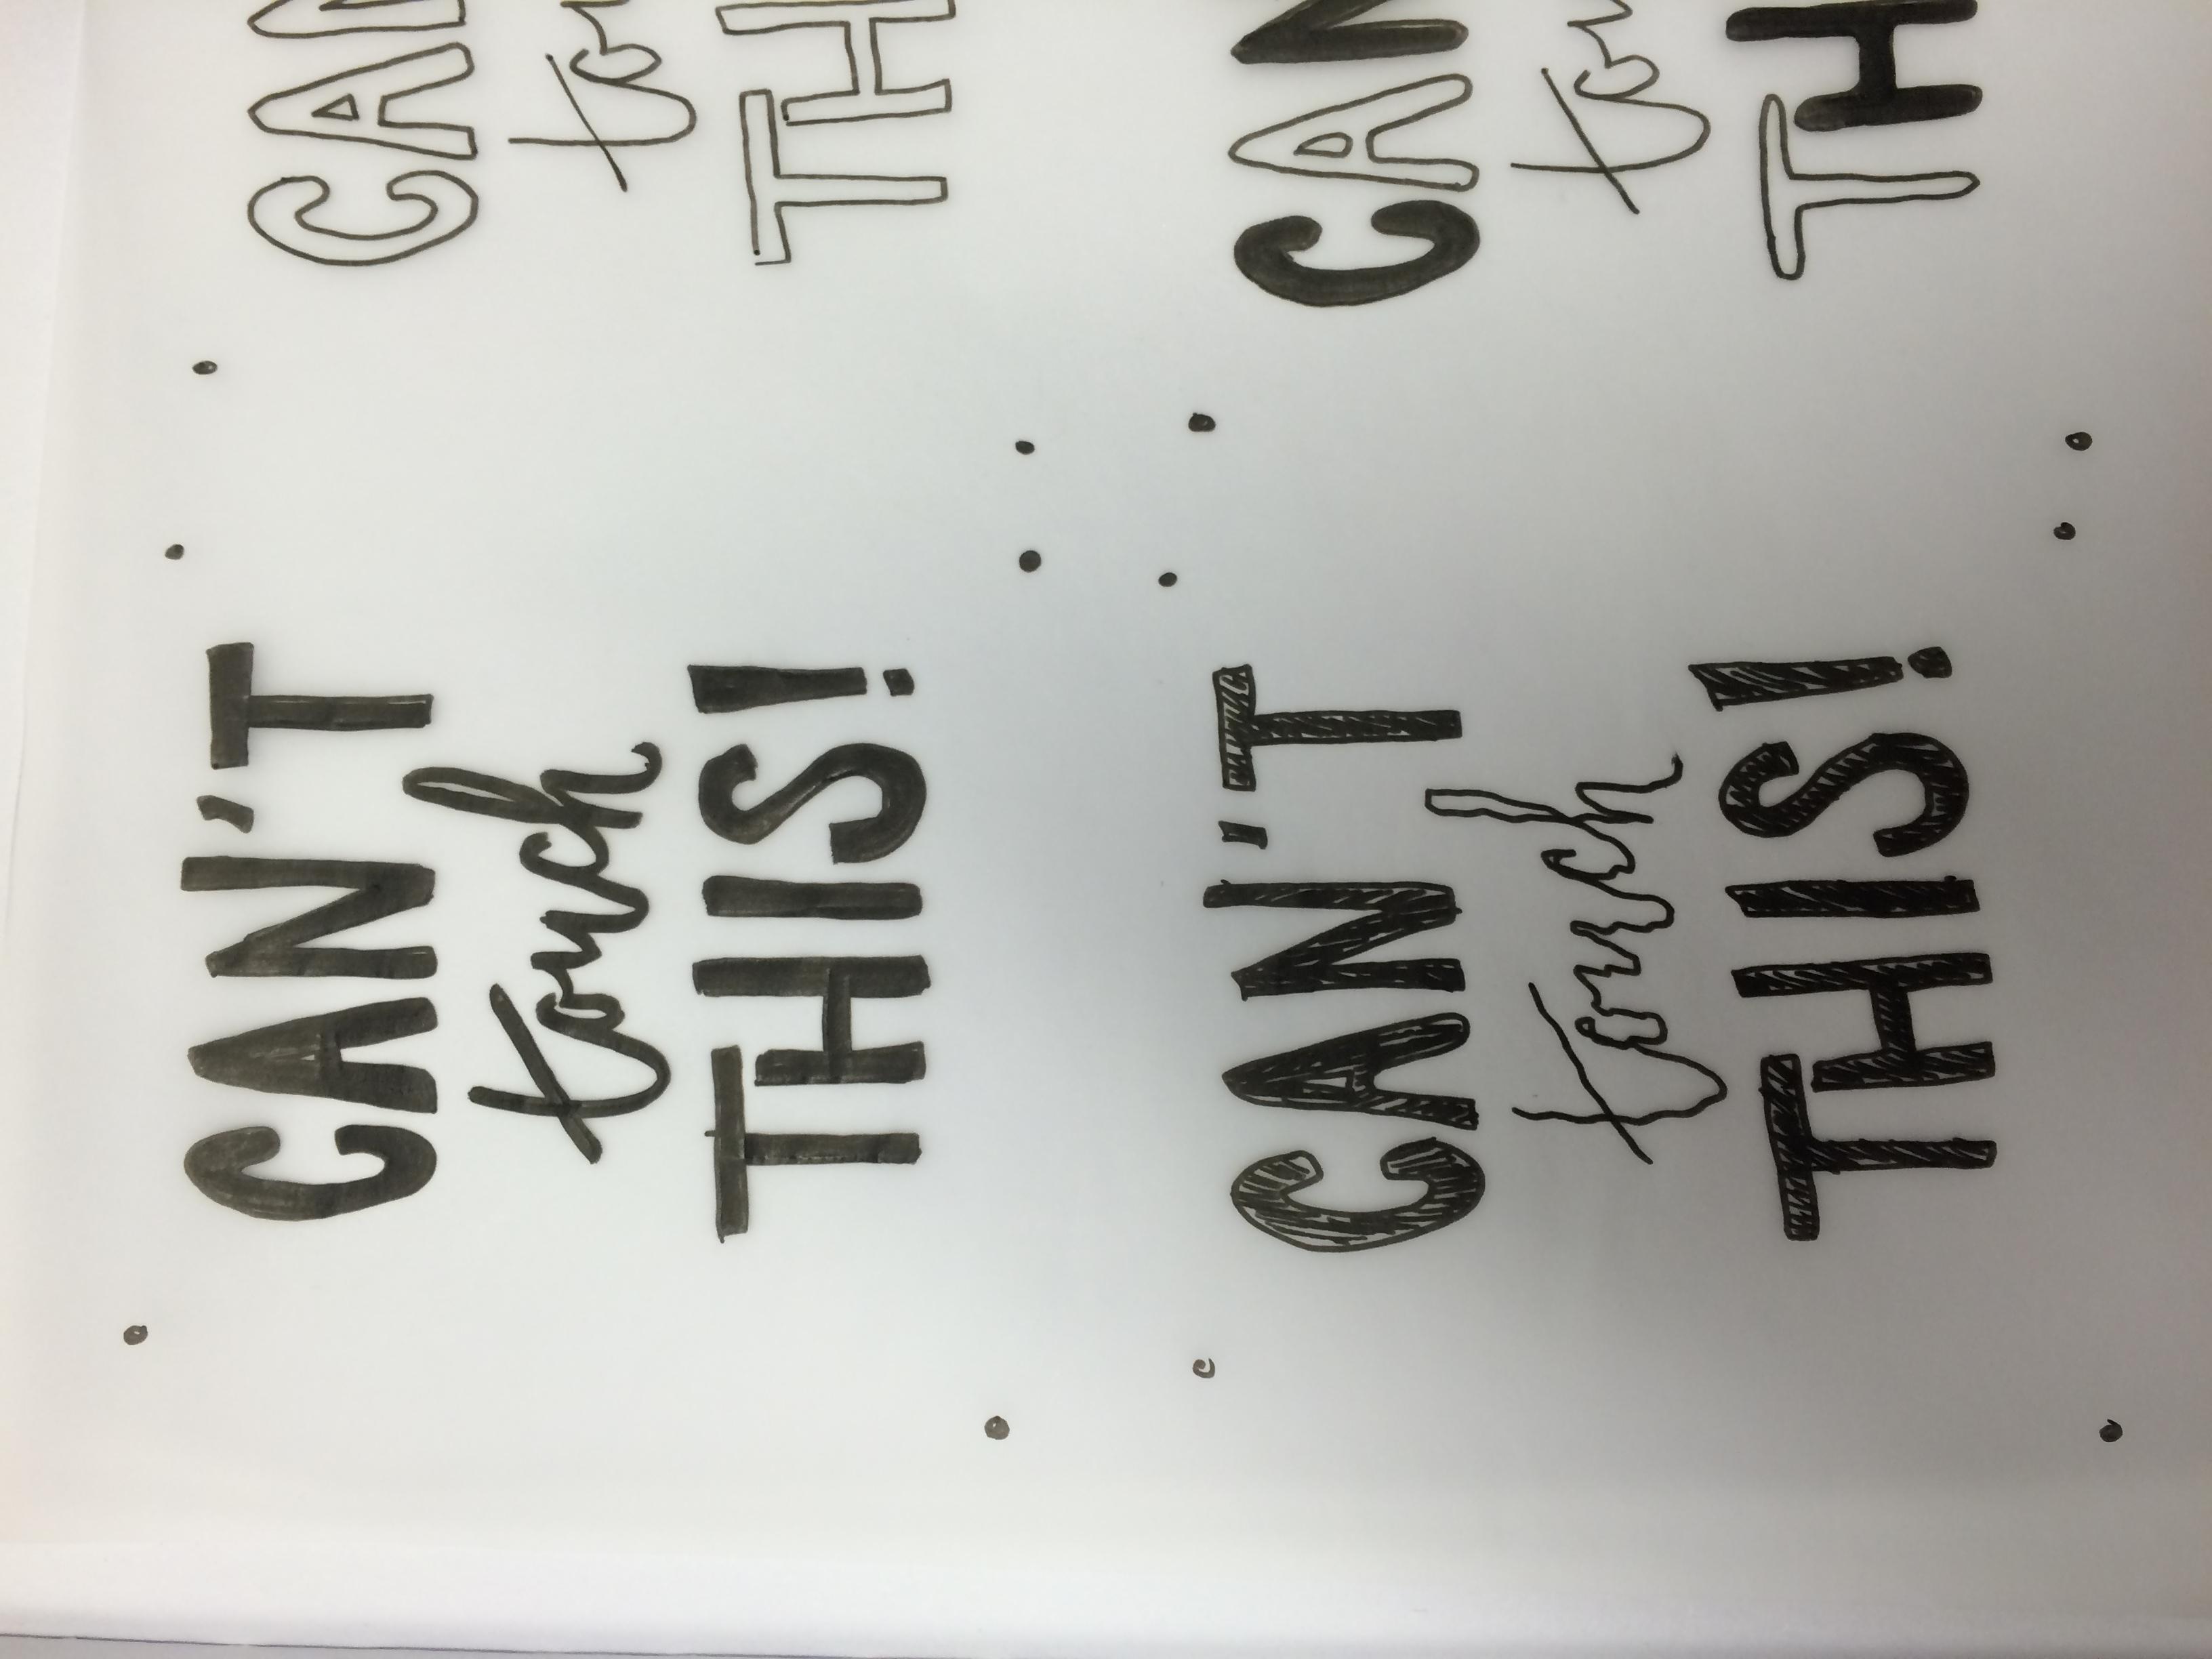 CAN'T
touch
THIS!
CAN
tou
TH
CAN'T
touch
THIS!
CAN
tou
TH